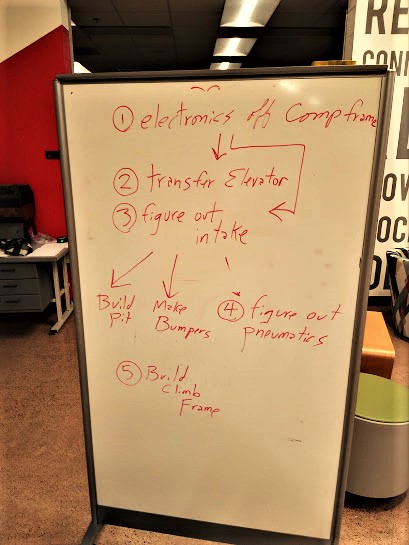 ① electronics off Comp frame
② transfer Elevator
③ figure out
intake
Build
Pit
Make
Bumpers
④ figure out
pneumatics
⑤ Build
Climb
Frame
RE
CONN
OW
OC
D